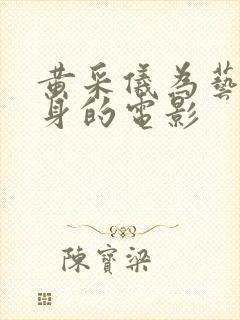 黄采儀為藝
身的電影
陳寶梁